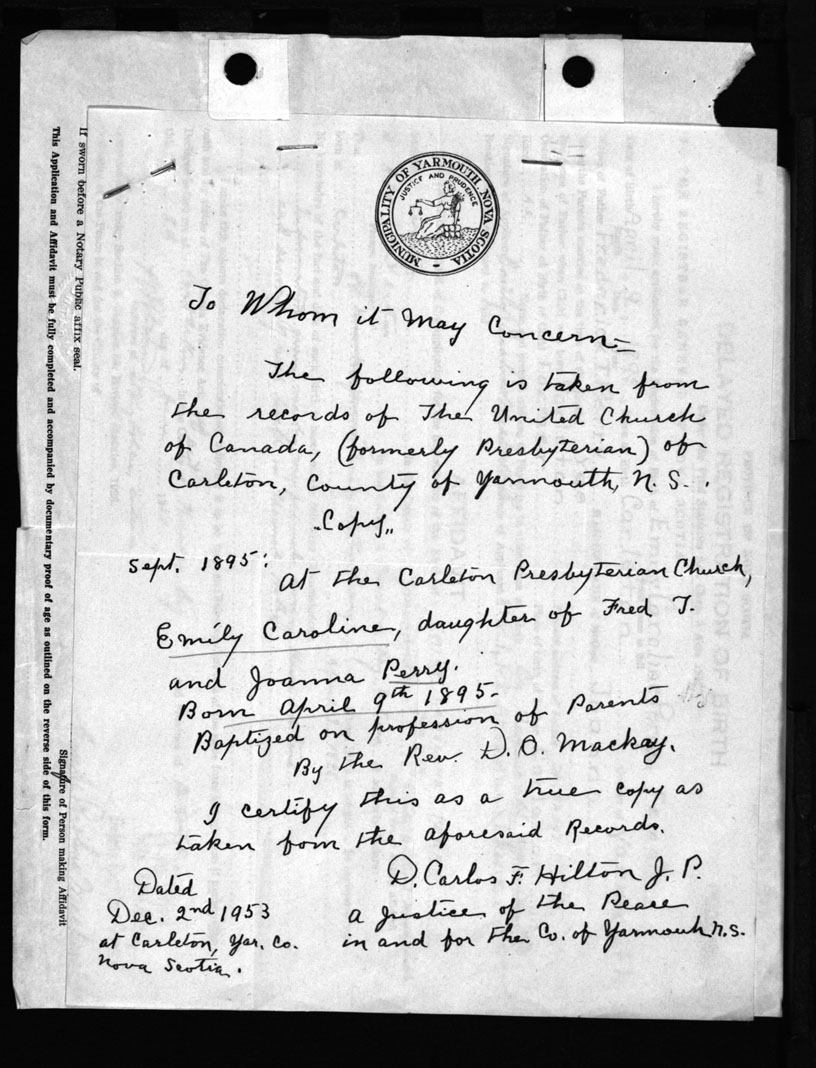 MUNICIPALITY OF YARMOUTH, NOVA SCOTIA
JUSTICE AND PRUDENCE
To Whom it May Concern:-
The following is taken from
the records of The United Church
of Canada, (formerly Presbyterian) of
Carleton, County of Yarmouth, N. S. .
"Copy"
Sept. 1895:
At the Carleton Presbyterian Church,
Emily Caroline, daughter of Fred T.
and Joanna Perry.
Born April 9th 1895-
Baptized on profession of Parents
By the Rev. D. O. Mackay.
I certify this as a true copy as
taken from the aforesaid Records.
D. Carlos F. Hilton J. P.
a Justice of the Peace
in and for the Co. of Yarmouth N.S.
Dated
Dec. 2nd 1953
at Carleton, Yar. Co.
Nova Scotia.
If sworn before a Notary Public affix seal.
This Application and Affidavit must be fully completed and accompanied by documentary proof of age as outlined on the reverse side of this form.
Signature of Person making Affidavit
DELAYED REGISTRATION OF BIRTH